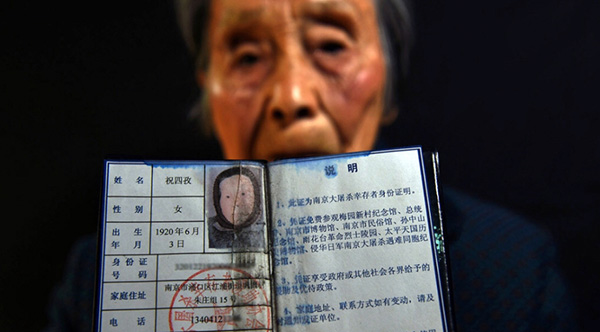 姓名 祝四孜
性别 女
出生年月 1920年6月3日
身份证号码
家庭住址 南京市浦口区江浦街道
朱庄组15号
电话 1340412
说明
1、此证为南京大屠杀幸存者身份证明。
2、凭证免费参观梅园新村纪念馆、总统
、南京市博物馆、南京市民俗馆、孙中山
纪念馆、雨花台革命烈士陵园、太平天国历
史博物馆、侵华日军南京大屠杀遇难同胞纪
凭证享受政府或其他社会各界给予的
及优待政策。
家庭地址、联系方式如有变动,请及
通知发证单位。